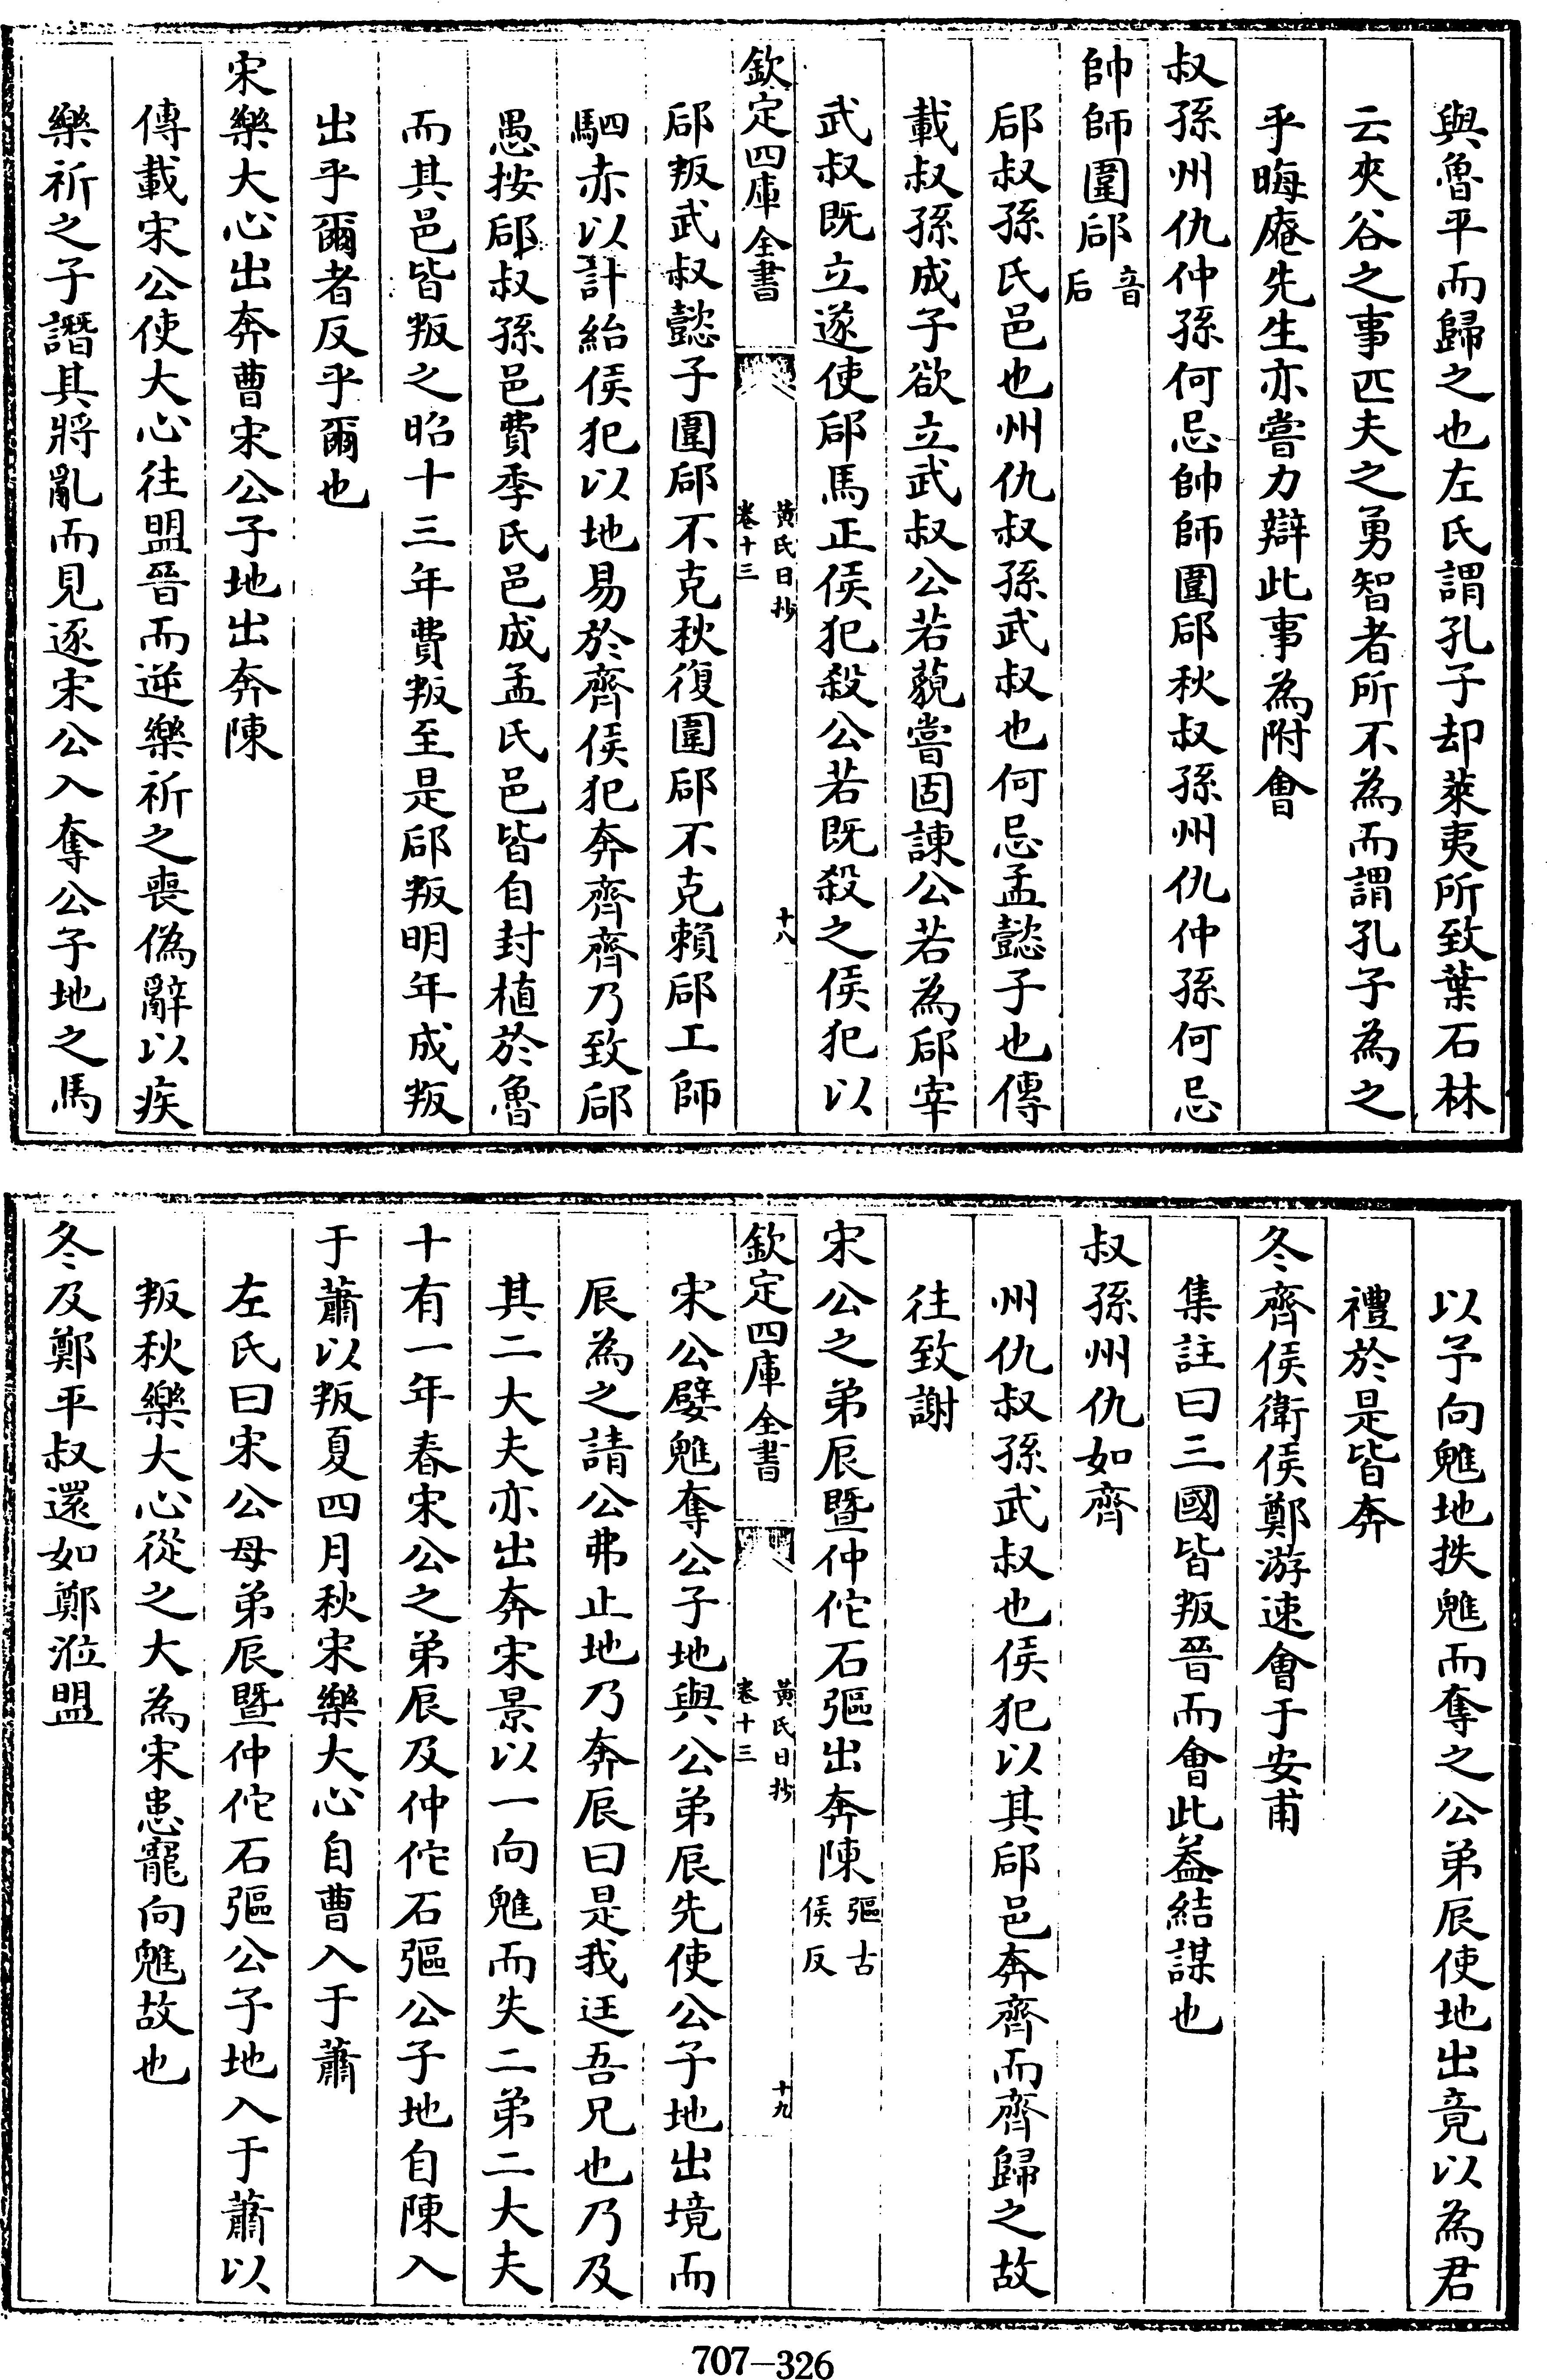 與魯平而歸之也左氏謂孔子却萊夷所致葉石林
云夾谷之事匹夫之勇智者所不為而謂孔子為之
乎晦庵先生亦嘗力辯此事為附會
叔孫州仇仲孫何忌帥師圍郈秋叔孫州仇仲孫何忌
帥師圍郈音后
郈叔孫氏邑也州仇叔孫武叔也何忌孟懿子也傳
載叔孫成子欲立武叔公若藐嘗固諫公若為郈宰
武叔既立遂使郈馬正侯犯殺公若既殺之侯犯以
欽定四庫全書
黃氏日抄
卷十三
十八
郈叛武叔懿子圍郈不克秋復圍郈不克賴郈工師
駟赤以計紿侯犯以地易於齊侯犯奔齊齊乃致郈
愚按郈叔孫邑費季氏邑成孟氏邑皆自封植於魯
而其邑皆叛之昭十三年費叛至是郈叛明年成叛
出乎爾者反乎爾也
宋樂大心出奔曹宋公子地出奔陳
傳載宋公使大心往盟晉而逆樂祈之喪偽辭以疾
樂祈之子譖其將亂而見逐宋公入奪公子地之馬
以予向魋地抶魋而奪之公弟辰使地出竟以為君
禮於是皆奔
冬齊侯衛侯鄭游速會于安甫
集註曰三國皆叛晉而會此蓋結謀也
叔孫州仇如齊
州仇叔孫武叔也侯犯以其郈邑奔齊而齊歸之故
往致謝
宋公之弟辰暨仲佗石彄出奔陳彄古侯反
欽定四庫全書
黃氏日抄
卷十三
十九
宋公嬖魋奪公子地與公弟辰先使公子地出境而
辰為之請公弗止地乃奔辰曰是我迋吾兄也乃及
其二大夫亦出奔宋景以一向魋而失二弟二大夫
十有一年春宋公之弟辰及仲佗石彄公子地自陳入
于蕭以叛夏四月秋宋樂大心自曹入于蕭
左氏曰宋公母弟辰暨仲佗石彄公子地入于蕭以
叛秋樂大心從之大為宋患寵向魋故也
冬及鄭平叔還如鄭涖盟
707-326